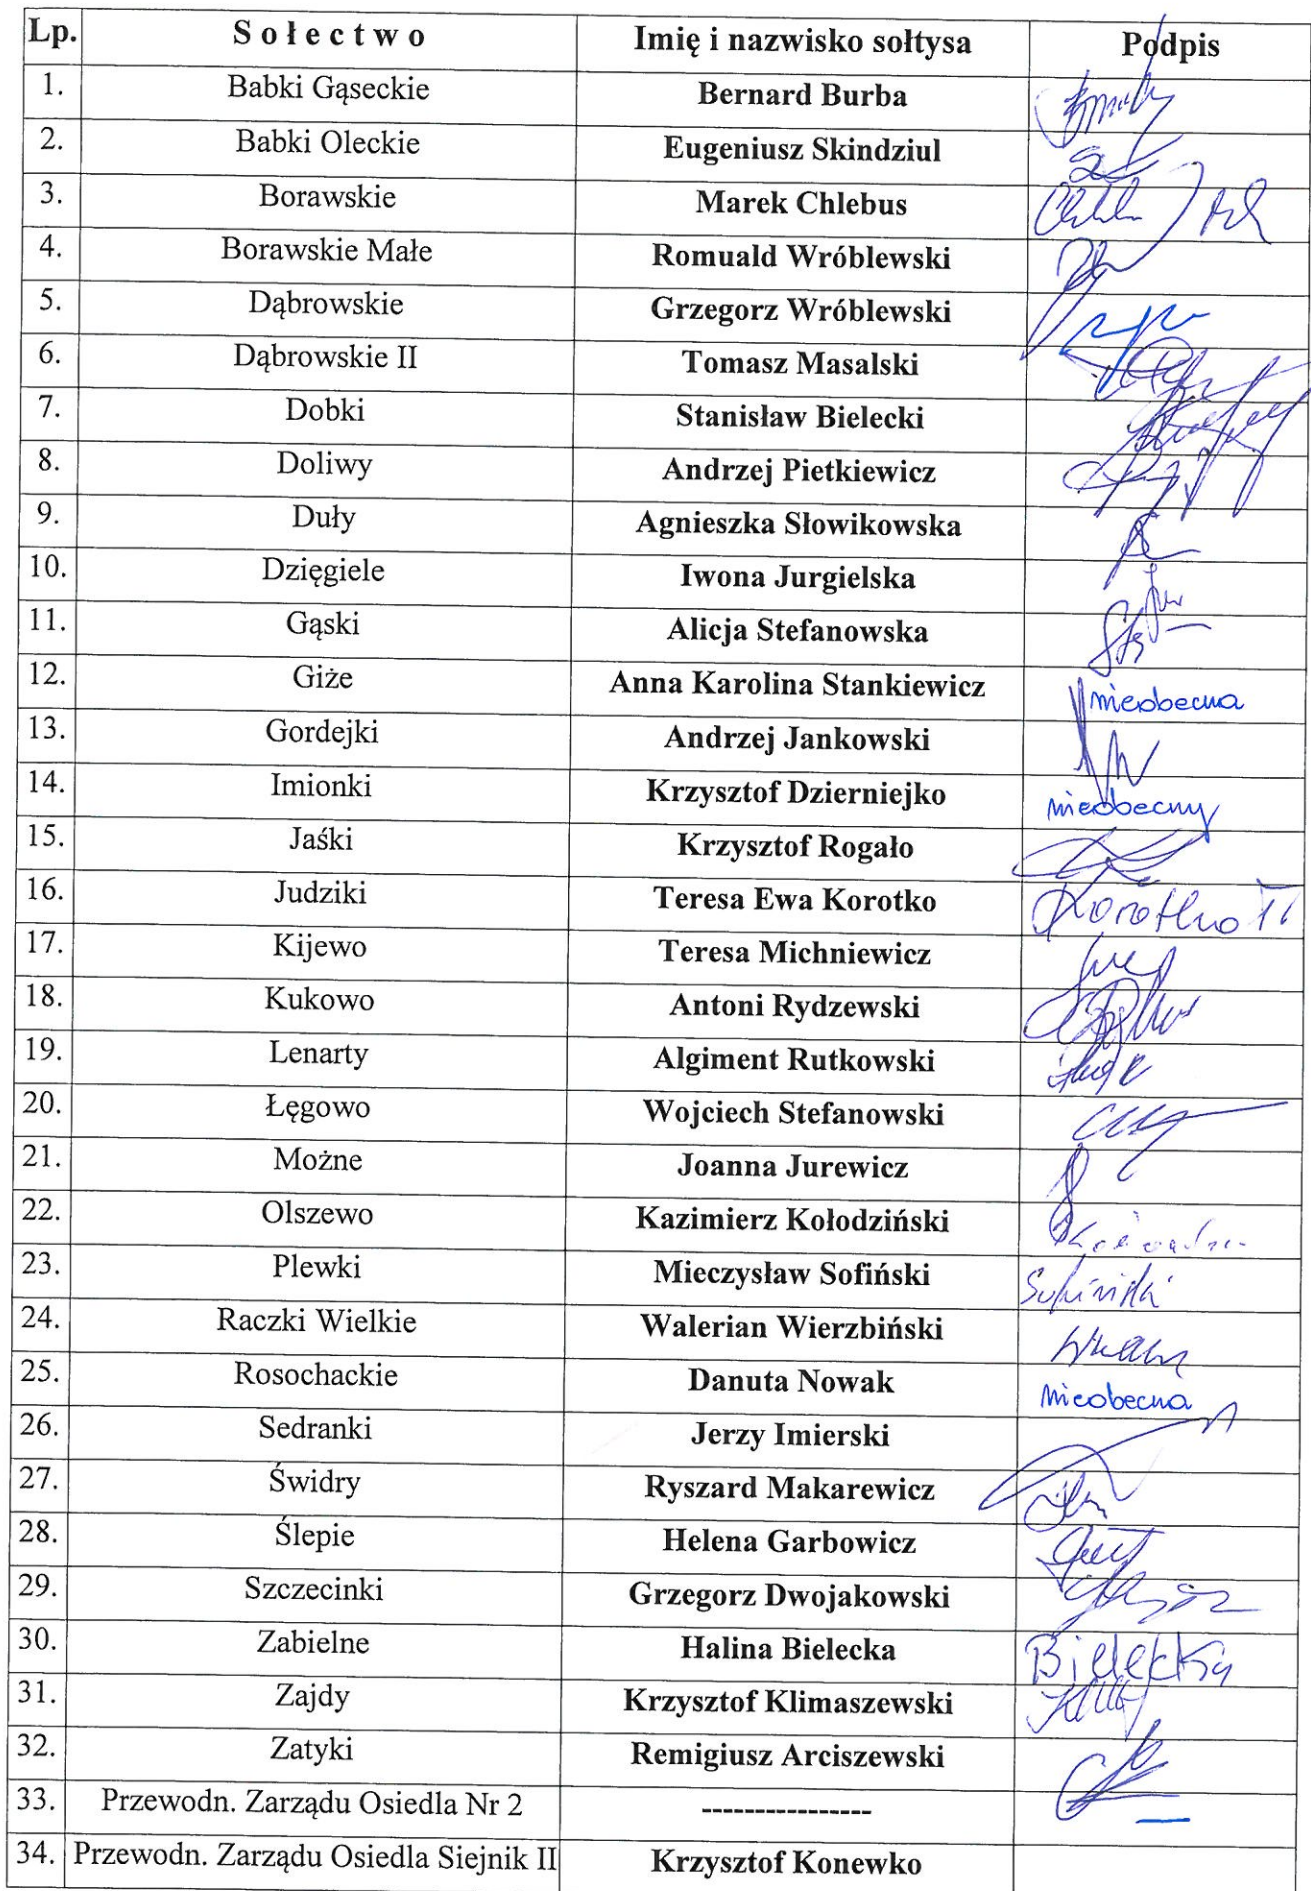 Lp. Sołectwo Imię i nazwisko sołtysa Podpis
1. Babki Gąseckie Bernard Burba
2. Babki Oleckie Eugeniusz Skindziul
3. Borawskie Marek Chlebus
4. Borawskie Małe Romuald Wróblewski
5. Dąbrowskie Grzegorz Wróblewski
6. Dąbrowskie II Tomasz Masalski
7. Dobki Stanisław Bielecki
8. Doliwy Andrzej Pietkiewicz
9. Duły Agnieszka Słowikowska
10. Dzięgiele Iwona Jurgielska
11. Gąski Alicja Stefanowska
12. Giże Anna Karolina Stankiewicz nieobecna
13. Gordejki Andrzej Jankowski
14. Imionki Krzysztof Dzierniejko nieobecny
15. Jaśki Krzysztof Rogało
16. Judziki Teresa Ewa Korotko Korotko T
17. Kijewo Teresa Michniewicz
18. Kukowo Antoni Rydzewski
19. Lenarty Algiment Rutkowski
20. Łęgowo Wojciech Stefanowski
21. Możne Joanna Jurewicz
22. Olszewo Kazimierz Kołodziński
23. Plewki Mieczysław Sofiński Sofiński
24. Raczki Wielkie Walerian Wierzbiński
25. Rosochackie Danuta Nowak nieobecna
26. Sedranki Jerzy Imierski
27. Świdry Ryszard Makarewicz
28. Ślepie Helena Garbowicz
29. Szczecinki Grzegorz Dwojakowski
30. Zabielne Halina Bielecka Bielecka
31. Zajdy Krzysztof Klimaszewski
32. Zatyki Remigiusz Arciszewski
33. Przewodn. Zarządu Osiedla Nr 2 ---------------- —
34. Przewodn. Zarządu Osiedla Siejnik II Krzysztof Konewko